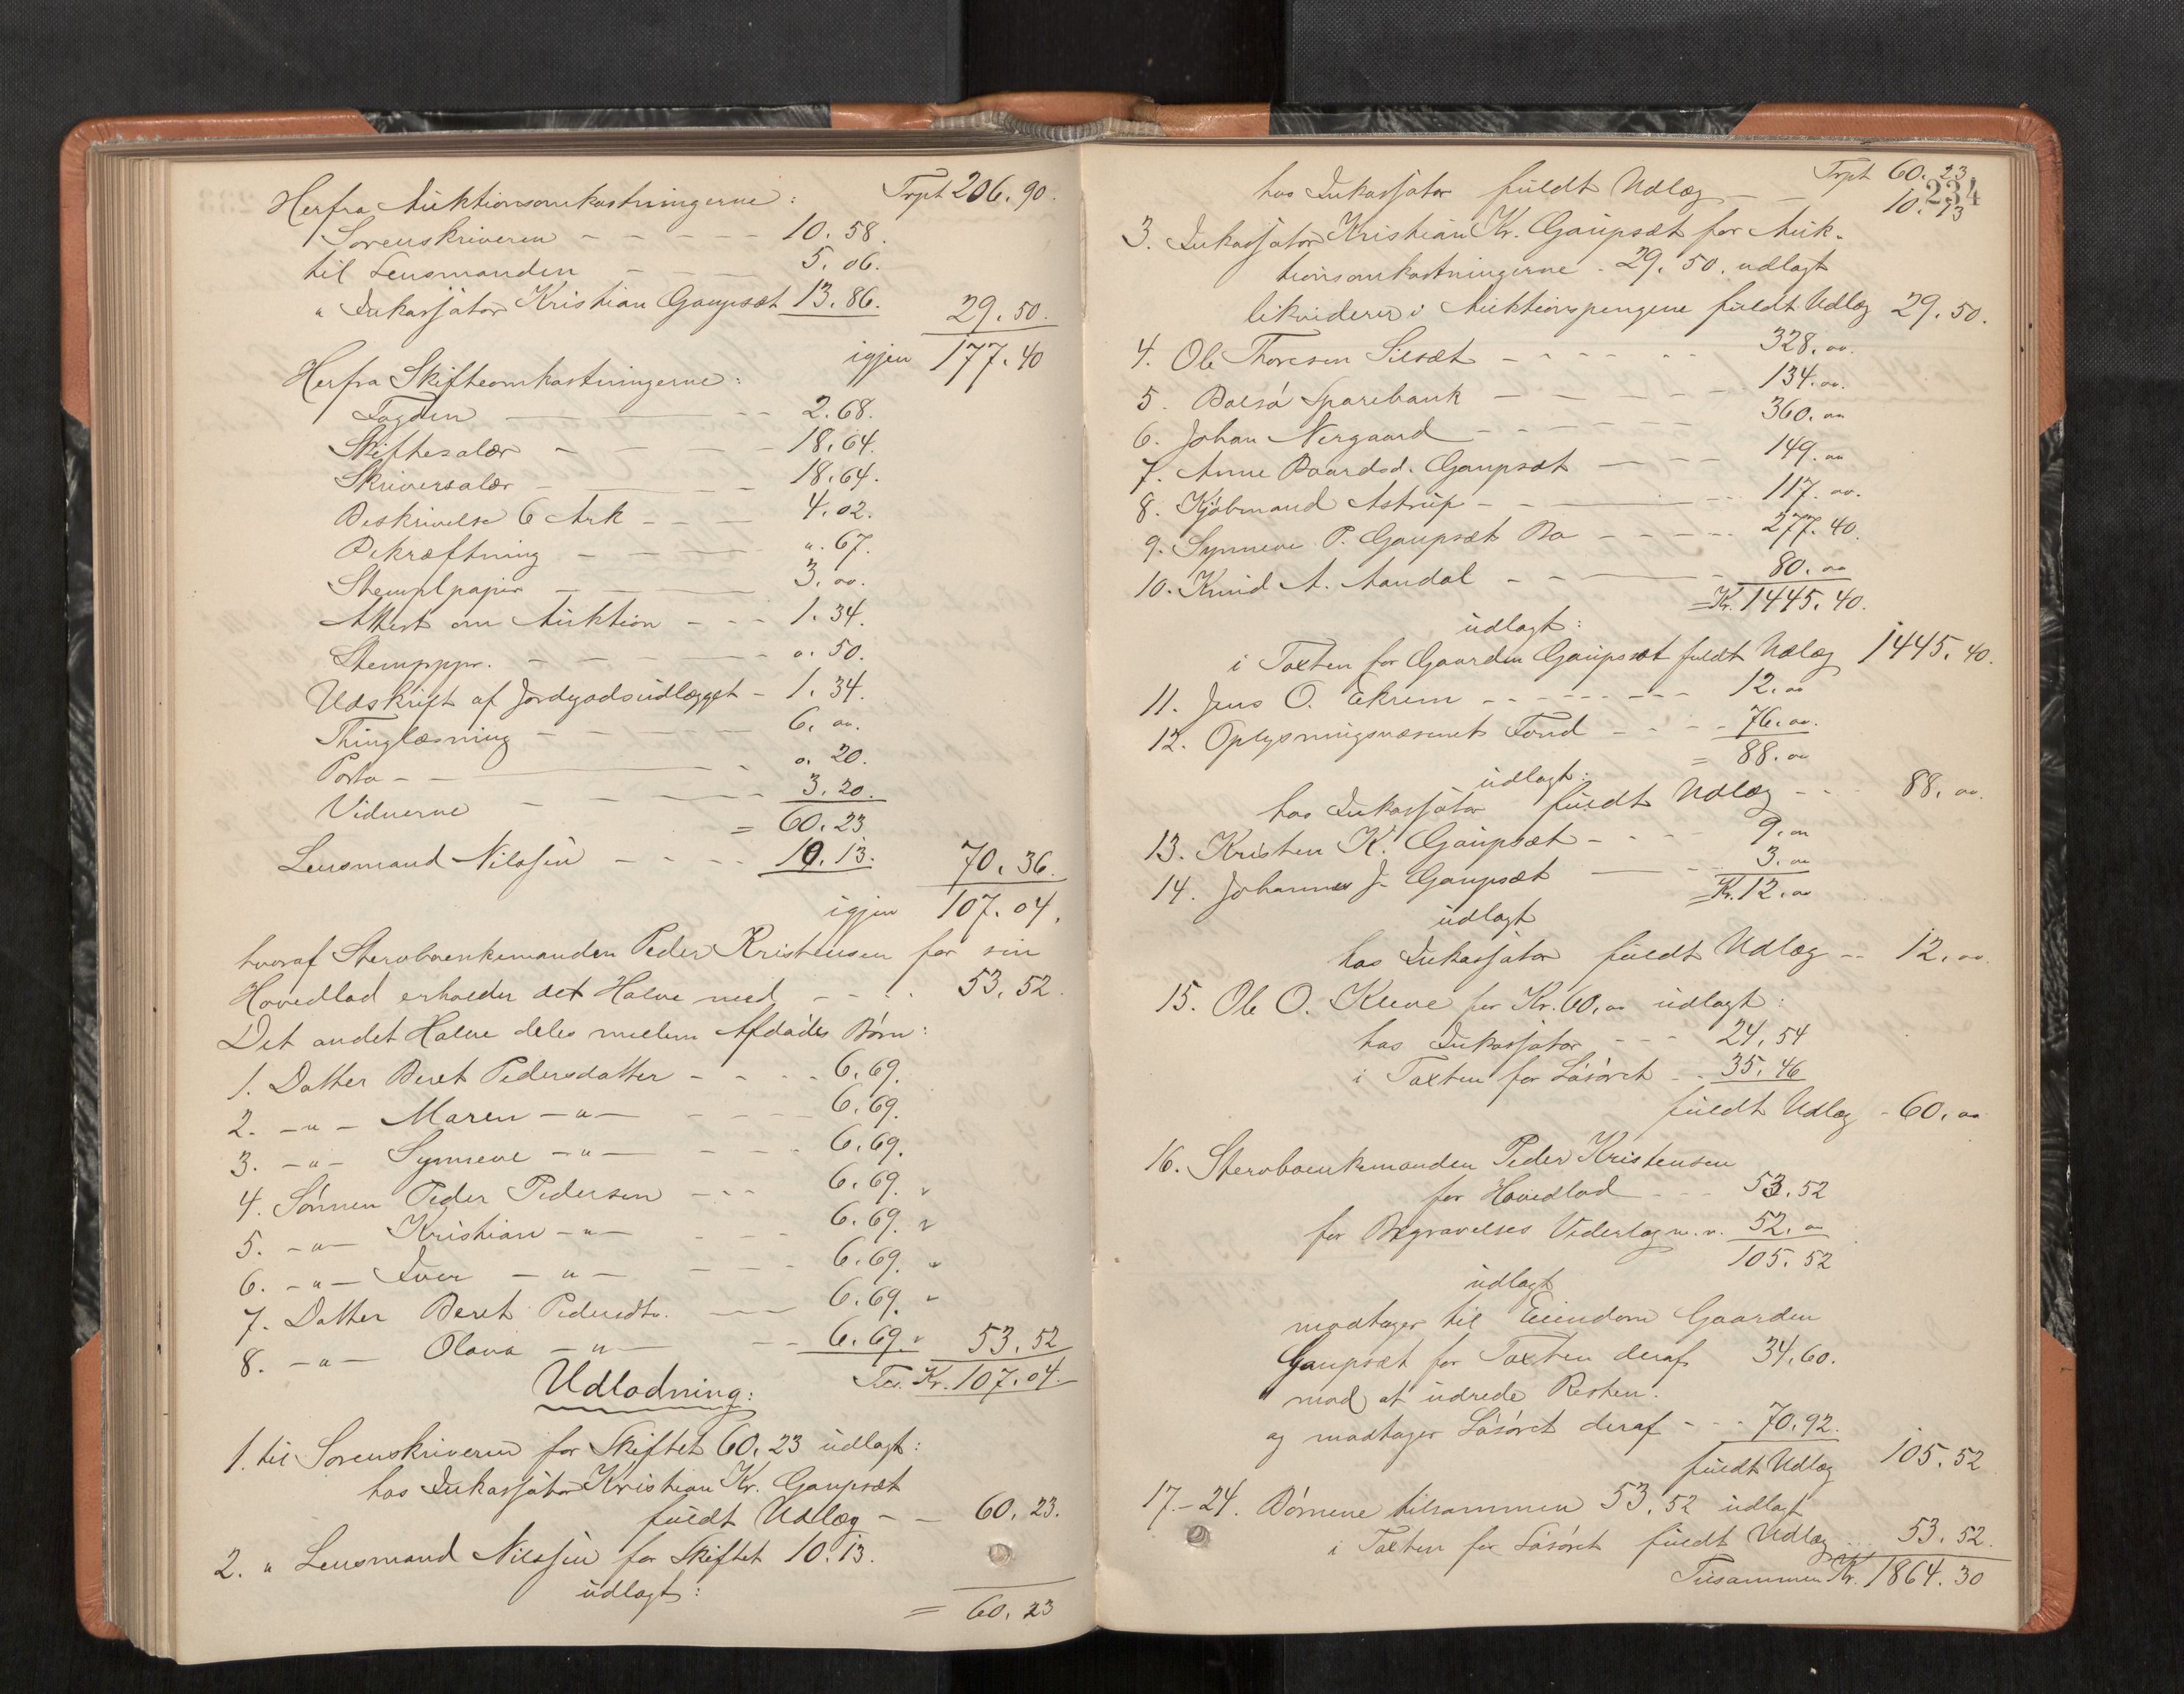 Trpt 206.90.
Herfra Auktionsomkostningerne:
Sorenskriveren - - - - - 10.58.
til Lensmanden - - - 5.06.
" Inkassator Kristian Gaupsæt 13.86. 29.50.
igjen 177.40
Herfra Skifteomkostningerne:
Fogden - - - 2.68.
Skiftesalær - - - 18.64.
Skriversalær - - - 18.64.
Beskrivelse 6 Ark - - - 4.02.
Bekræftning - - - ".67.
Stemplpapir - - - 3.00.
Attest om Auktion - - - 1.34.
Stempppr. - - - 0.50.
Udskrift af Jordgodsudlægget - 1.34.
Thinglæsning - - - 6.00.
Porto - - - 0.20.
Vidnerne - - - 3.20.
= 60.23.
Lensmand Nilssen - - - - 10.13. 70.36.
igjen 107.04.
hvoraf Stervboenkemanden Peder Kristensen for sin
Hovedlod erholder det Halve med - - - 53.52.
Det andet Halve deles mellem Afdødes Børn:
1. Datter Beret Pedersdatter - - - - 6.69.
2. -"- Maren -"- - - - 6.69.
3. -"- Synneve -"- - - - 6.69.
4. Sønnen Peder Pedersen - - - 6.69.
5. -"- Kristian -"- - - - 6.69.
6. -"- Iver -"- - - - 6.69.
7. Datter Beret Pedersdtr. - - 6.69.
8. -"- Olava -"- - - 6.69. 53.52
Tils. Kr. 107.04.
Udlodning:
1. til Sorenskriveren for Skiftet 60.23 udlagt:
hos Inkassator Kristian Kr. Gaupsæt
fuldt Udlæg - - 60.23.
2. " Lensmand Nilssen for Skiftet 10.13.
udlagt:
= 60.23
234
Trpt 60.23
hos Inkassator fuldt Udlæg - - 10.13
3. Inkassator Kristian Kr. Gaupsæt for Auk-
tionsomkostningerne - 29.50. udlagt
likviderer i Auktionspengene fuldt Udlæg 29.50.
4. Ole Thoresen Silsæt - - - - - 328.00.
5. Bolsø Sparebank - - - - - 134.00.
6. Johan Nergaard - - - - - 360.00
7. Anne Baardsd. Gaupsæt - - - 149.00
8. Kjøbmand Astrup - - - 117.00.
9. Synneve P. Gaupsæt Bo - - - - 277.40.
10. Knud A. Aandal - - - 80.00
= Kr. 1445.40.
udlagt:
i Taxten for Gaarden Gaupsæt fuldt Udlæg 1445.40.
11. Jens O. Ekrem - - - - - - 12.00
12. Oplysningsvæsenets Fond - - - - 76.00.
= 88.00
udlagt:
hos Inkassator fuldt Udlæg - - - 88.00.
13. Kristen K. Gaupsæt - - - 9.00
14. Johannes J. Gaupsæt - - 3.00
= Kr. 12.00
udlagt
hos Inkassator fuldt Udlæg - - 12.00.
15. Ole O. Kleve for Kr. 60.00 udlagt:
hos Inkassator - - - 24.54
i Taxten for Løsøret - - 35.46
fuldt Udlæg - 60.00
16. Stervboenkemanden Peder Kristensen
for Hovedlod - - - 53.52
for Begravelses Vederlag m.v. 52.00
105.52
udlagt
modtager til Eiendom Gaarden
Gaupsæt for Taxten deraf 34.60.
mod at udrede Resten.
og modtager Løsøret deraf - - - 70.92.
fuldt Udlæg 105.52
17.-24. Børnene tilsammen 53.52 udlagt
i Taxten for Løsøret fuldt Udlæg . . . 53.52.
Tilsammen Kr. 1864.30